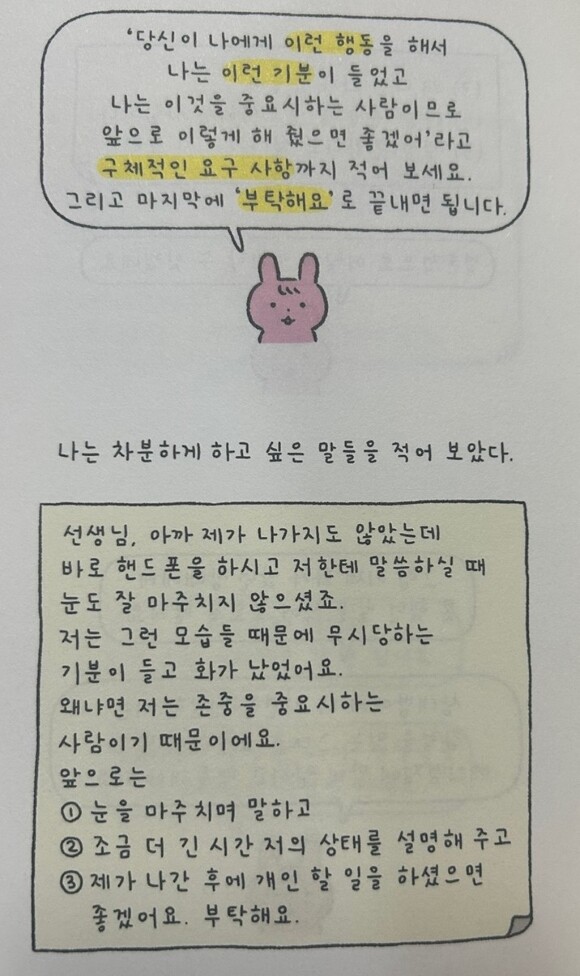 '당신이 나에게 이런 행동을 해서
나는 이런 기분이 들었고
나는 이것을 중요시하는 사람이므로
앞으로 이렇게 해 줬으면 좋겠어'라고
구체적인 요구 사항까지 적어 보세요.
그리고 마지막에 '부탁해요'로 끝내면 됩니다.
나는 차분하게 하고 싶은 말들을 적어 보았다.
선생님, 아까 제가 나가지도 않았는데
바로 핸드폰을 하시고 저한테 말씀하실 때
눈도 잘 마주치지 않으셨죠.
저는 그런 모습들 때문에 무시당하는
기분이 들고 화가 났었어요.
왜냐면 저는 존중을 중요시하는
사람이기 때문이에요.
앞으로는
① 눈을 마주치며 말하고
② 조금 더 긴 시간 저의 상태를 설명해 주고
③ 제가 나간 후에 개인 할 일을 하셨으면
좋겠어요. 부탁해요.